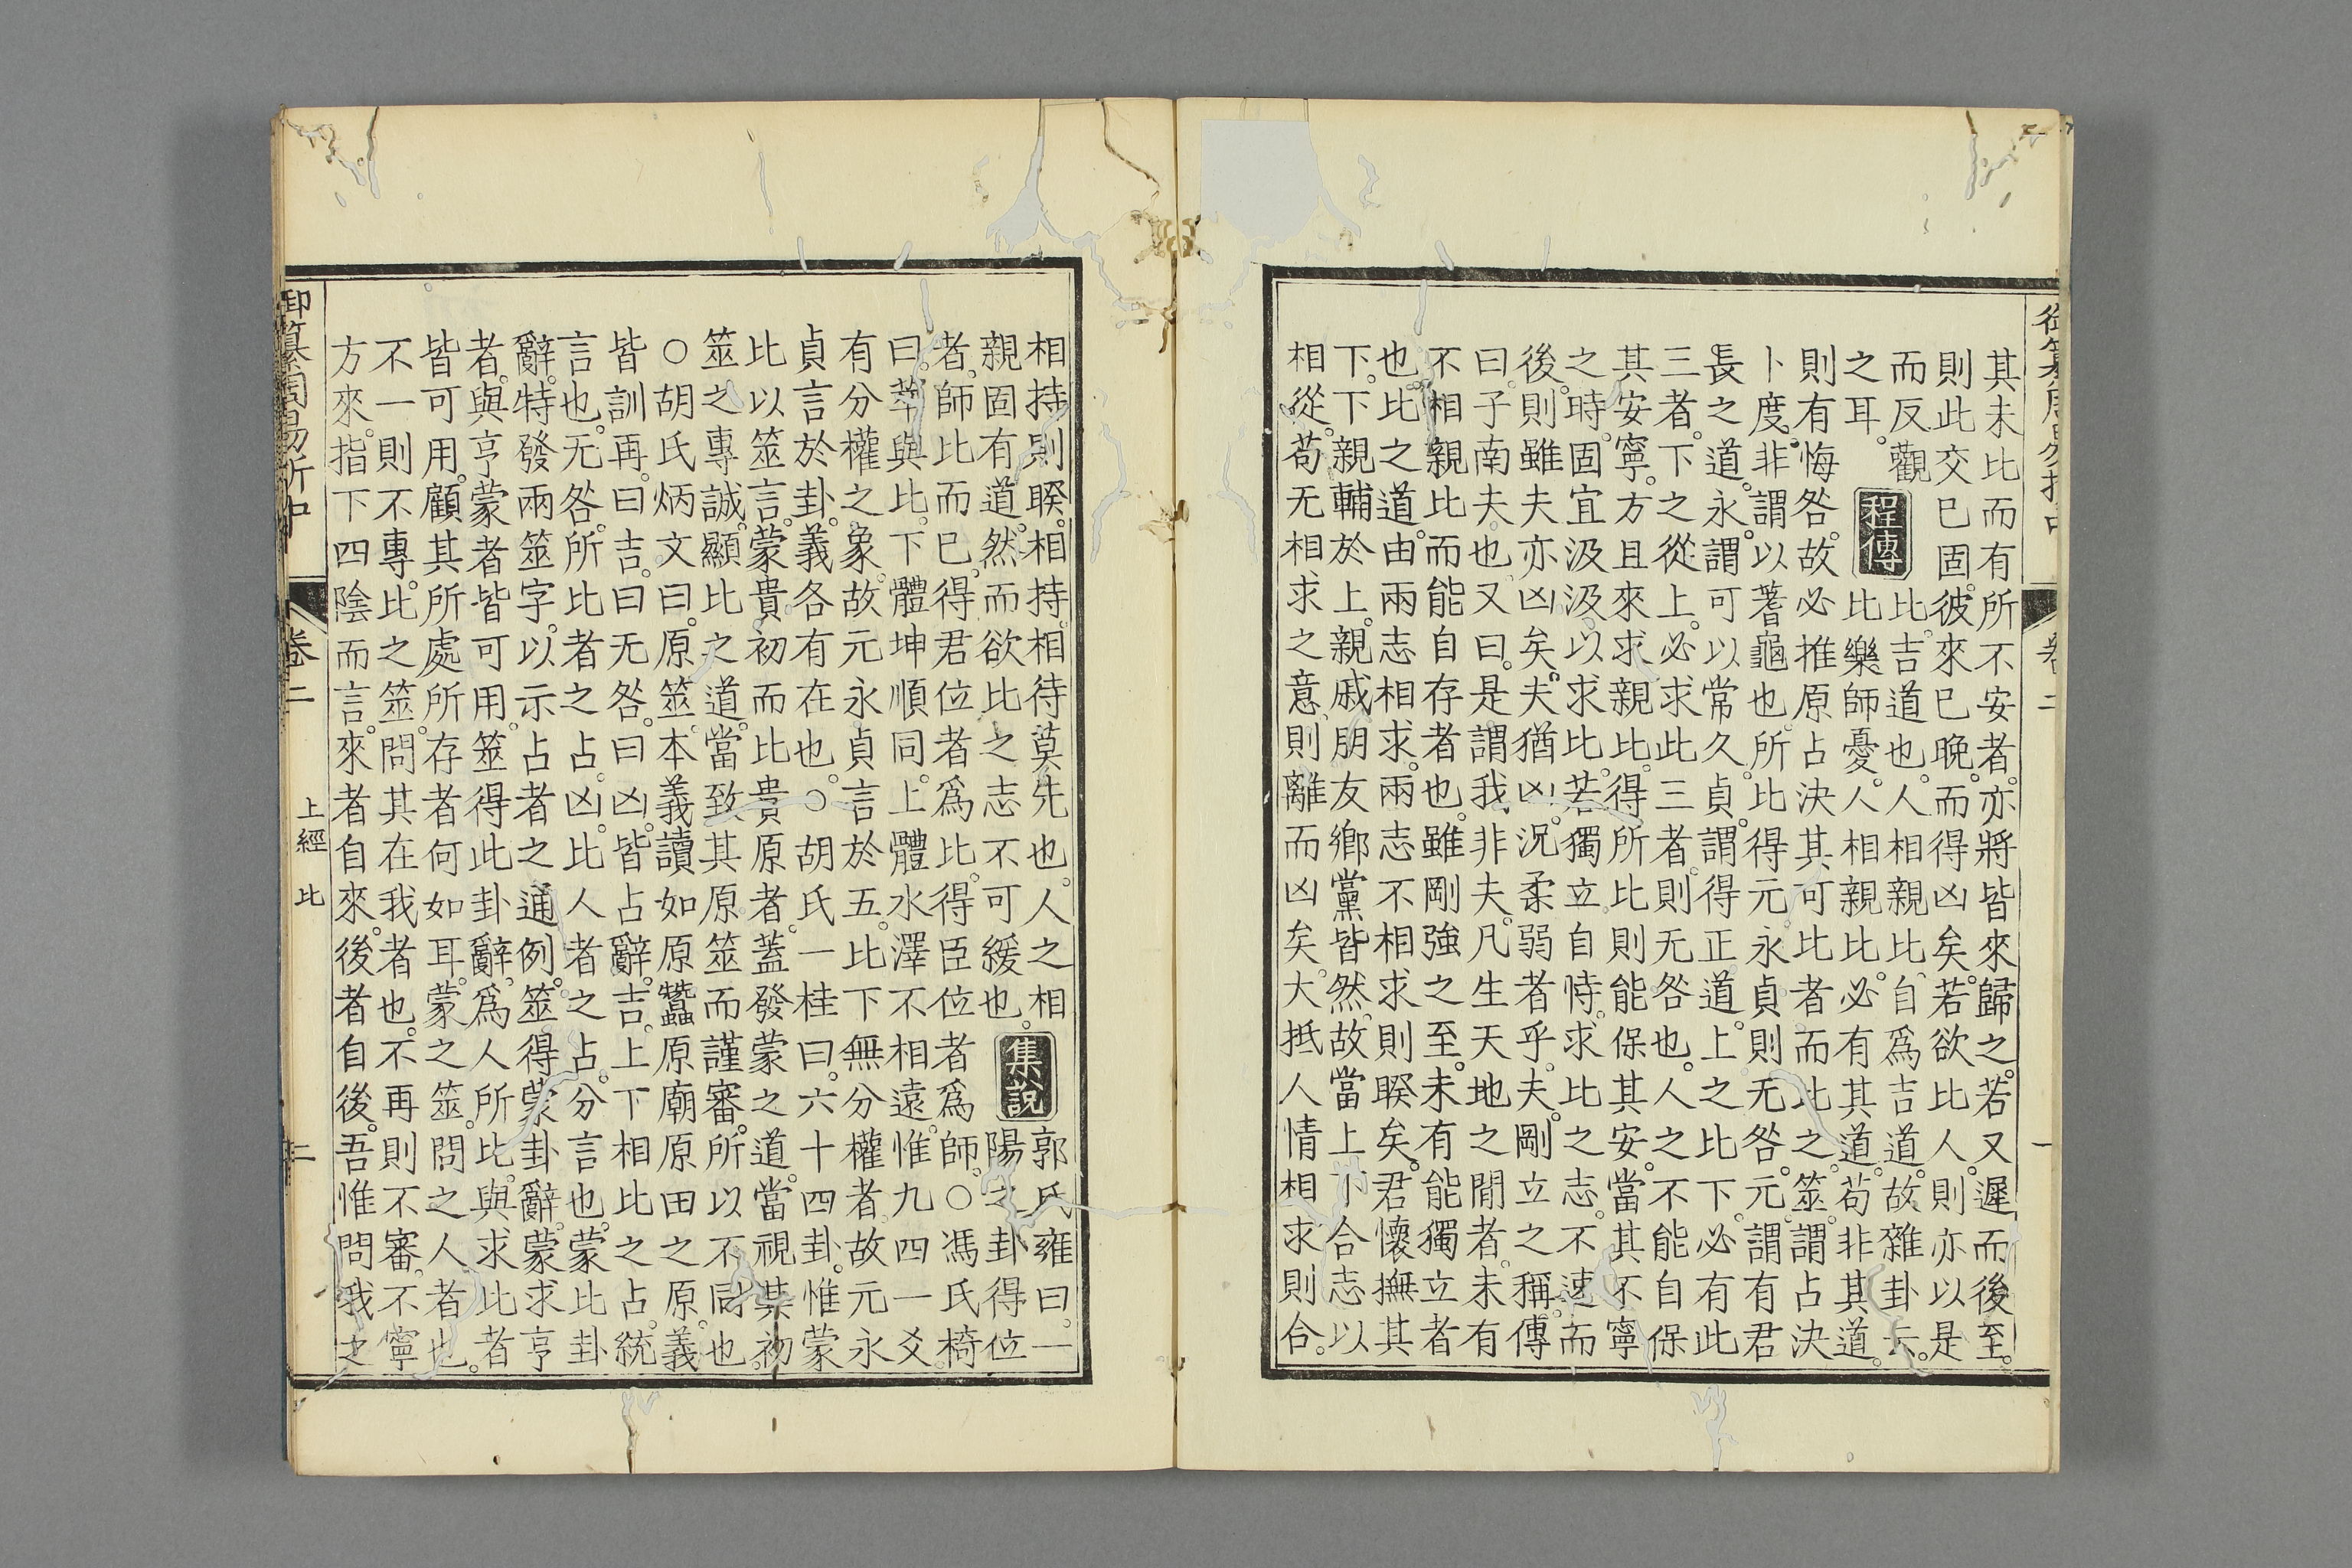 御纂周易折中
卷二
一
其未比而有所不安者。亦將皆來歸之。若又遲而後至。
則此交已固。彼來已晚。而得凶矣。若欲比人。則亦以是
而反觀
之耳。
程傳
比吉道也。人相親比。自爲吉道。故雜卦云。
比樂師憂。人相親比。必有其道。苟非其道。
則有悔咎。故必推原占決其可比者而比之。筮。謂占決
卜度。非謂以蓍龜也。所比得元永貞則无咎。元。謂有君
長之道。永。謂可以常久。貞。謂得正道。上之比下。必有此
三者。下之從上。必求此三者。則无咎也。人之不能自保
其安寧。方且來求親比。得所比則能保其安。當其不寧
之時。固宜汲汲以求比。若獨立自恃。求比之志。不速而
後。則雖夫亦凶矣。夫猶凶。況柔弱者乎。夫。剛立之稱。傳
曰。子南夫也。又曰。是謂我非夫。凡生天地之閒者。未有
不相親比。而能自存者也。雖剛強之至。未有能獨立者
也。比之道。由兩志相求。兩志不相求則睽矣。君懷撫其
下。下親輔於上。親戚朋友鄉黨皆然。故當上下合志以
相從。苟无相求之意。則離而凶矣。大抵人情相求則合。
相持則睽。相持。相待莫先也。人之相
親固有道。然而欲比之志不可緩也。
集說
郭氏雍曰。一
陽之卦得位
者。師比而已。得君位者爲比。得臣位者爲師。○馮氏椅
曰。萃與比。下體坤順同。上體水澤不相遠。惟九四一爻。
有分權之象。故元永貞言於五。比下無分權者。故元永
貞言於卦。義各有在也。○胡氏一桂曰。六十四卦。惟蒙
比以筮言。蒙貴初而比貴原者。蓋發蒙之道。當視其初
筮之專誠。顯比之道。當致其原筮而謹審。所以不同也。
○胡氏炳文曰。原筮。本義讀如原蠶原廟原田之原。義
皆訓再。曰吉。曰无咎。曰凶。皆占辭。吉。上下相比之占。統
言也。无咎。所比者之占。凶。比人者之占。分言也。蒙比卦
辭。特發兩筮字。以示占者之通例。筮得蒙卦辭。蒙求亨
者。與亨蒙者皆可用。筮得此卦辭。爲人所比。與求比者
皆可用。顧其所處所存者何如耳。蒙之筮。問之人者也。
不一則不專。比之筮。問其在我者也。不再則不審。不寧
方來。指下四陰而言。來者自來。後者自後。吾惟問我之
御纂周易折中
卷二
上經 比
二